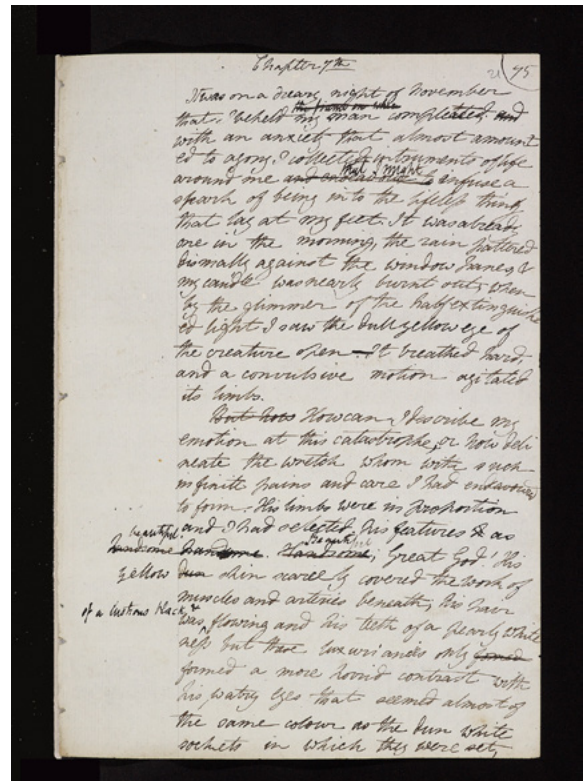 Chapter 7th
21 75
It was on a dreary night of November
the frame on whic
that I beheld my man compleated, and
with an anxiety that almost amount
ed to agony, I collected instruments of life
that I might
around me and endeavour to infuse a
spark of being into the lifeless thing
that lay at my feet. It was already
one in the morning, the rain pattered
dismally against the window panes, &
my candle was nearly burnt out, when
by the glimmer of the half extinguish
ed light I saw the dull yellow eye of
the creature open — It breathed hard,
and a convulsive motion agitated
its limbs.
But how How can I describe my
emotion at this catastrophe, or how deli
neate the wretch whom with such
infinite pains and care I had endeavoured
to form. His limbs were in proportion
and I had selected his features & as
beautiful. Beautiful
handsome handsome. Handsome, Great God! His
yellow dun skin scarcely covered the work of
muscles and arteries beneath; his hair
of a lustrous black, &
was flowing and his teeth of a pearly white
ness but these luxuriances only formed
formed a more horrid contrast with
his watry eyes that seemed almost of
the same colour as the dun white
sockets in which they were set,